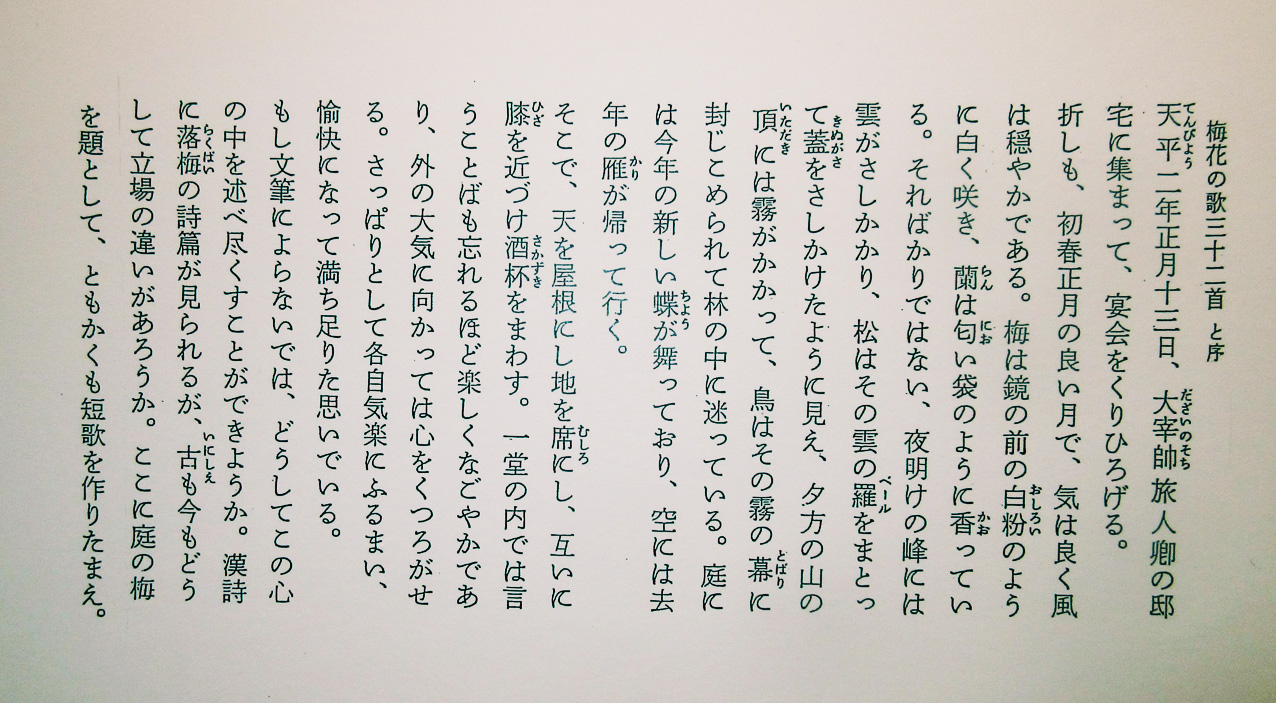 梅花の歌三十二首 と序
天平二年正月十三日、大宰帥旅人卿の邸
宅に集まって、宴会をくりひろげる。
折しも、初春正月の良い月で、気は良く風
は穏やかである。梅は鏡の前の白粉のよう
に白く咲き、蘭は匂い袋のように香ってい
る。そればかりではない、夜明けの峰には
雲がさしかかり、松はその雲の羅をまとっ
て蓋をさしかけたように見え、夕方の山の
頂には霧がかかって、鳥はその霧の幕に
封じこめられて林の中に迷っている。庭に
は今年の新しい蝶が舞っており、空には去
年の雁が帰って行く。
そこで、天を屋根にし地を席にし、互いに
膝を近づけ酒杯をまわす。一堂の内では言
うことばも忘れるほど楽しくなごやかであ
り、外の大気に向かっては心をくつろがせ
る。さっぱりとして各自気楽にふるまい、
愉快になって満ち足りた思いでいる。
もし文筆によらないでは、どうしてこの心
の中を述べ尽くすことができようか。漢詩
に落梅の詩篇が見られるが、古も今もどう
して立場の違いがあろうか。ここに庭の梅
を題として、ともかくも短歌を作りたまえ。